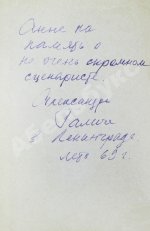 Анне на
память о
не очень скромном
сценаристе.
Александр
Галич
в Ленинграде
лето 69 г.